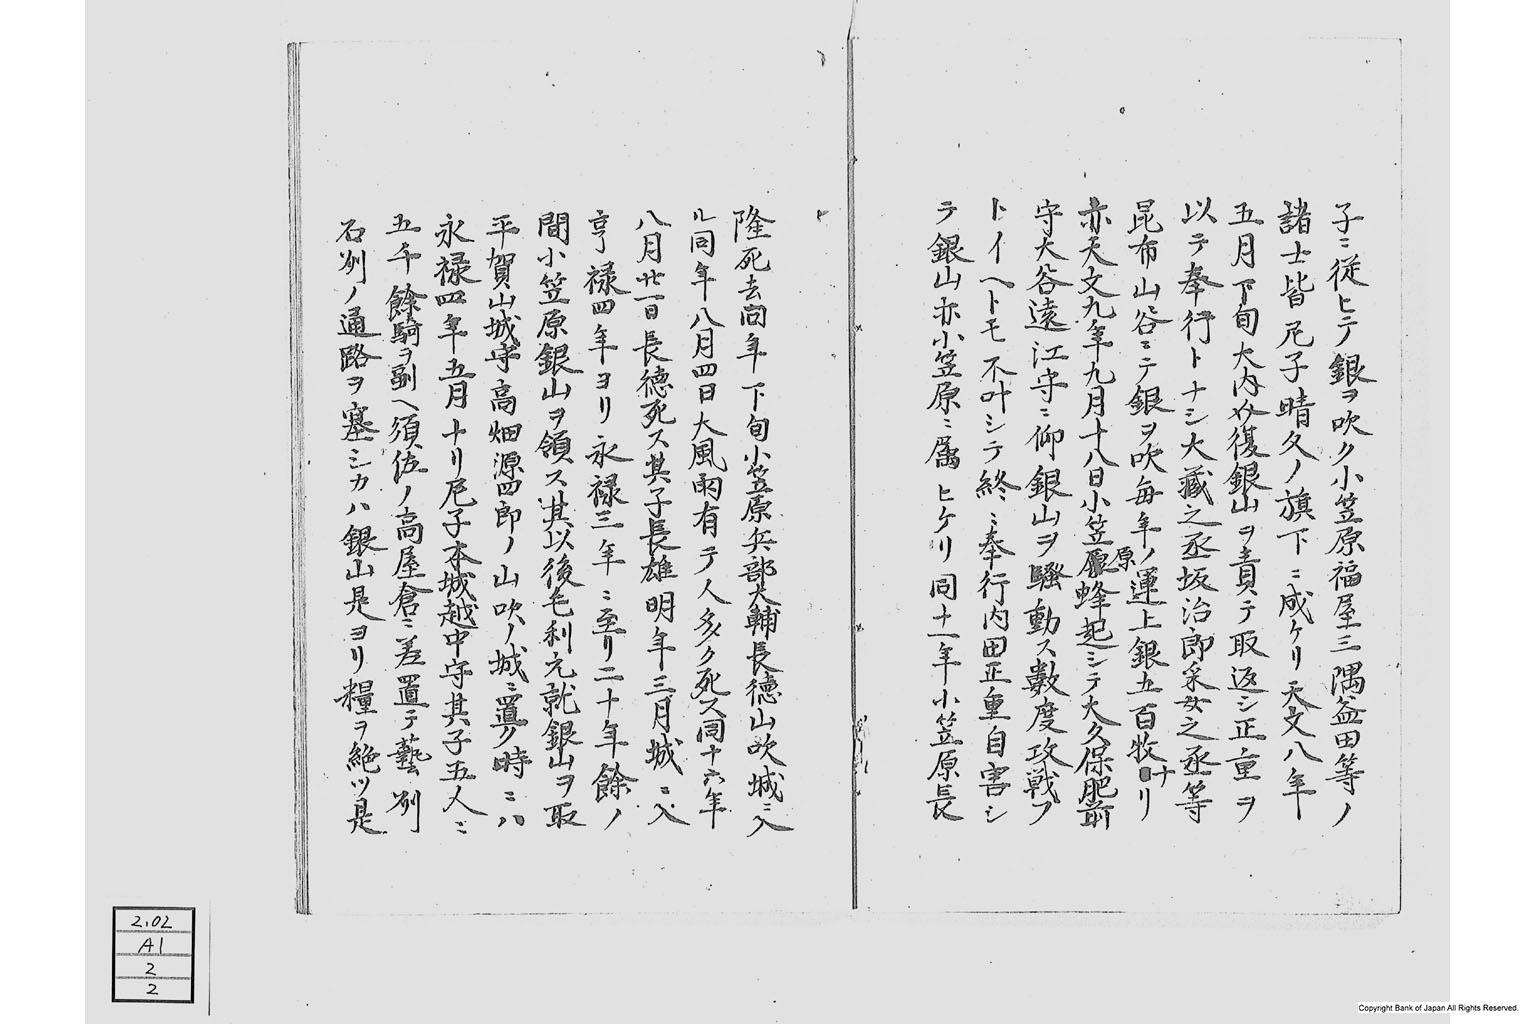 子ニ従ヒテ銀ヲ吹ク小笠原福屋三隅益田等ノ
諸士皆尼子晴久ノ旗下ニ成ケリ天文八年
五月下旬大内又復銀山ヲ責テ取返シ正重ヲ
以テ奉行トナシ大藏之丞坂治郎采女之丞等
昆布山谷ニテ銀ヲ吹毎年ノ運上銀五百牧ナリ
亦天文九年九月十八日小笠原蜂起シテ大久保肥前
守大谷遠江守ニ仰銀山ヲ騒動ス數度攻戦フ
トイヘトモ不叶シテ終ニ奉行内田正重自害シ
テ銀山亦小笠原ニ属ヒケリ同十一年小笠原長
隆死去同年下旬小笠原兵部大輔長徳山吹城ニ入
ル同年八月四日大風雨有テ人多ク死ス同十六年
八月廿一日長徳死ス其子長雄明年三月城ニ入
亨禄四年ヨリ永禄三年ニ至リ二十年餘ノ
間小笠原銀山ヲ領ス其以後毛利元就銀山ヲ取
平賀山城守高畑源四郎ノ山吹ノ城ニ置ク時ニハ
永禄四年五月十リ尼子本城越中守其子五人ニ
五千餘騎ヲ副ヘ須佐ノ高屋倉ニ差置テ藝州
石州ノ通路ヲ塞シカハ銀山是ヨリ糧ヲ絶ツ是
2.02
A1
2
2
Copyright Bank of Japan All Rights Reserved.